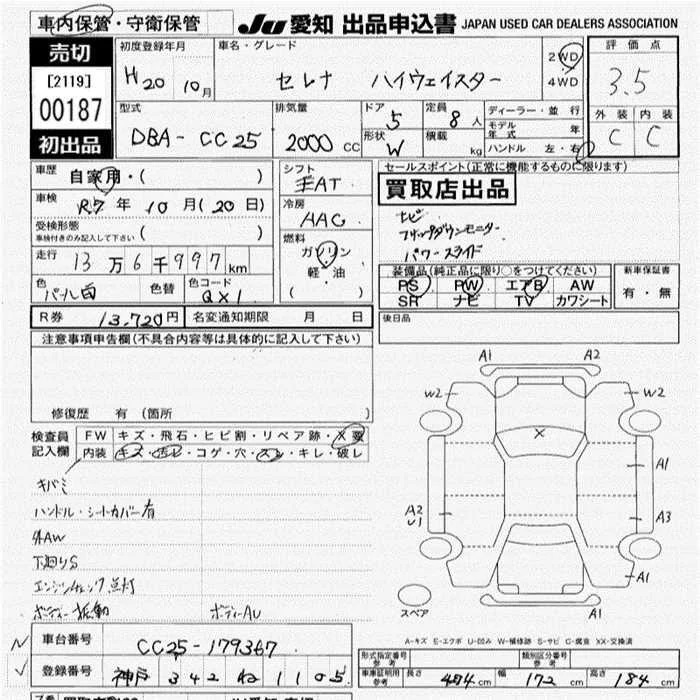 車内保管・守衛保管
JU 愛知 出品申込書 JAPAN USED CAR DEALERS ASSOCIATION
売切
[2119]
00187
初出品
初度登録年月
H20 10月
車名・グレード
セレナ ハイウェイスター
2WD
4WD
評価点
3.5
外装 内装
C C
型式
DBA-CC25
排気量
2000 CC
ドア 5
形状 W
定員 8人
積載 kg
ディーラー・並行
モデル年式 年
ハンドル 左・右
車歴
自家用・( )
車検
R.7年10月(20日)
受検形態
車検付きのみ記入して下さい ( )
走行
13万6千997km
色
パール白
色替
色コード
QX1
シフト
AT
冷房
AAC
燃料
ガソリン
軽・油
( )
セールスポイント(正常に機能するものに限ります)
買取店出品
ナビ
フリップダウンモニター
パワースライド
装備品(純正品に限り○をつけてください)
PS PW エアB AW
SR ナビ TV カワシート
新車保証書
有・無
R券 13,720円 名変通知期限 月 日
後日品
注意事項申告欄(不具合内容等は具体的に記入して下さい)
修復歴 有(箇所 )
検査員
記入欄
FW キズ・飛石・ヒビ割・リペア跡・X要
内装 キズ・汚レ・コゲ・穴・スレ・キレ・破レ
キバミ
ハンドル・シートカバー有
外AW
下廻りS
エンジンチェック点灯
ボディー振動 ボディーAU
A1 A2
W2 W2
X
A1
A2
U1
A3
A1
A1
スペア
A-キズ E-エクボ U-凹み W-補修跡 S-サビ C-腐食 XX-交換済
車台番号
CC25-179367
登録番号
神戸 342 ね 1105
形式指定番号
参考
類別区分番号
参考
車庫証明用
参考
長さ 484cm 幅 172cm 高さ 184cm